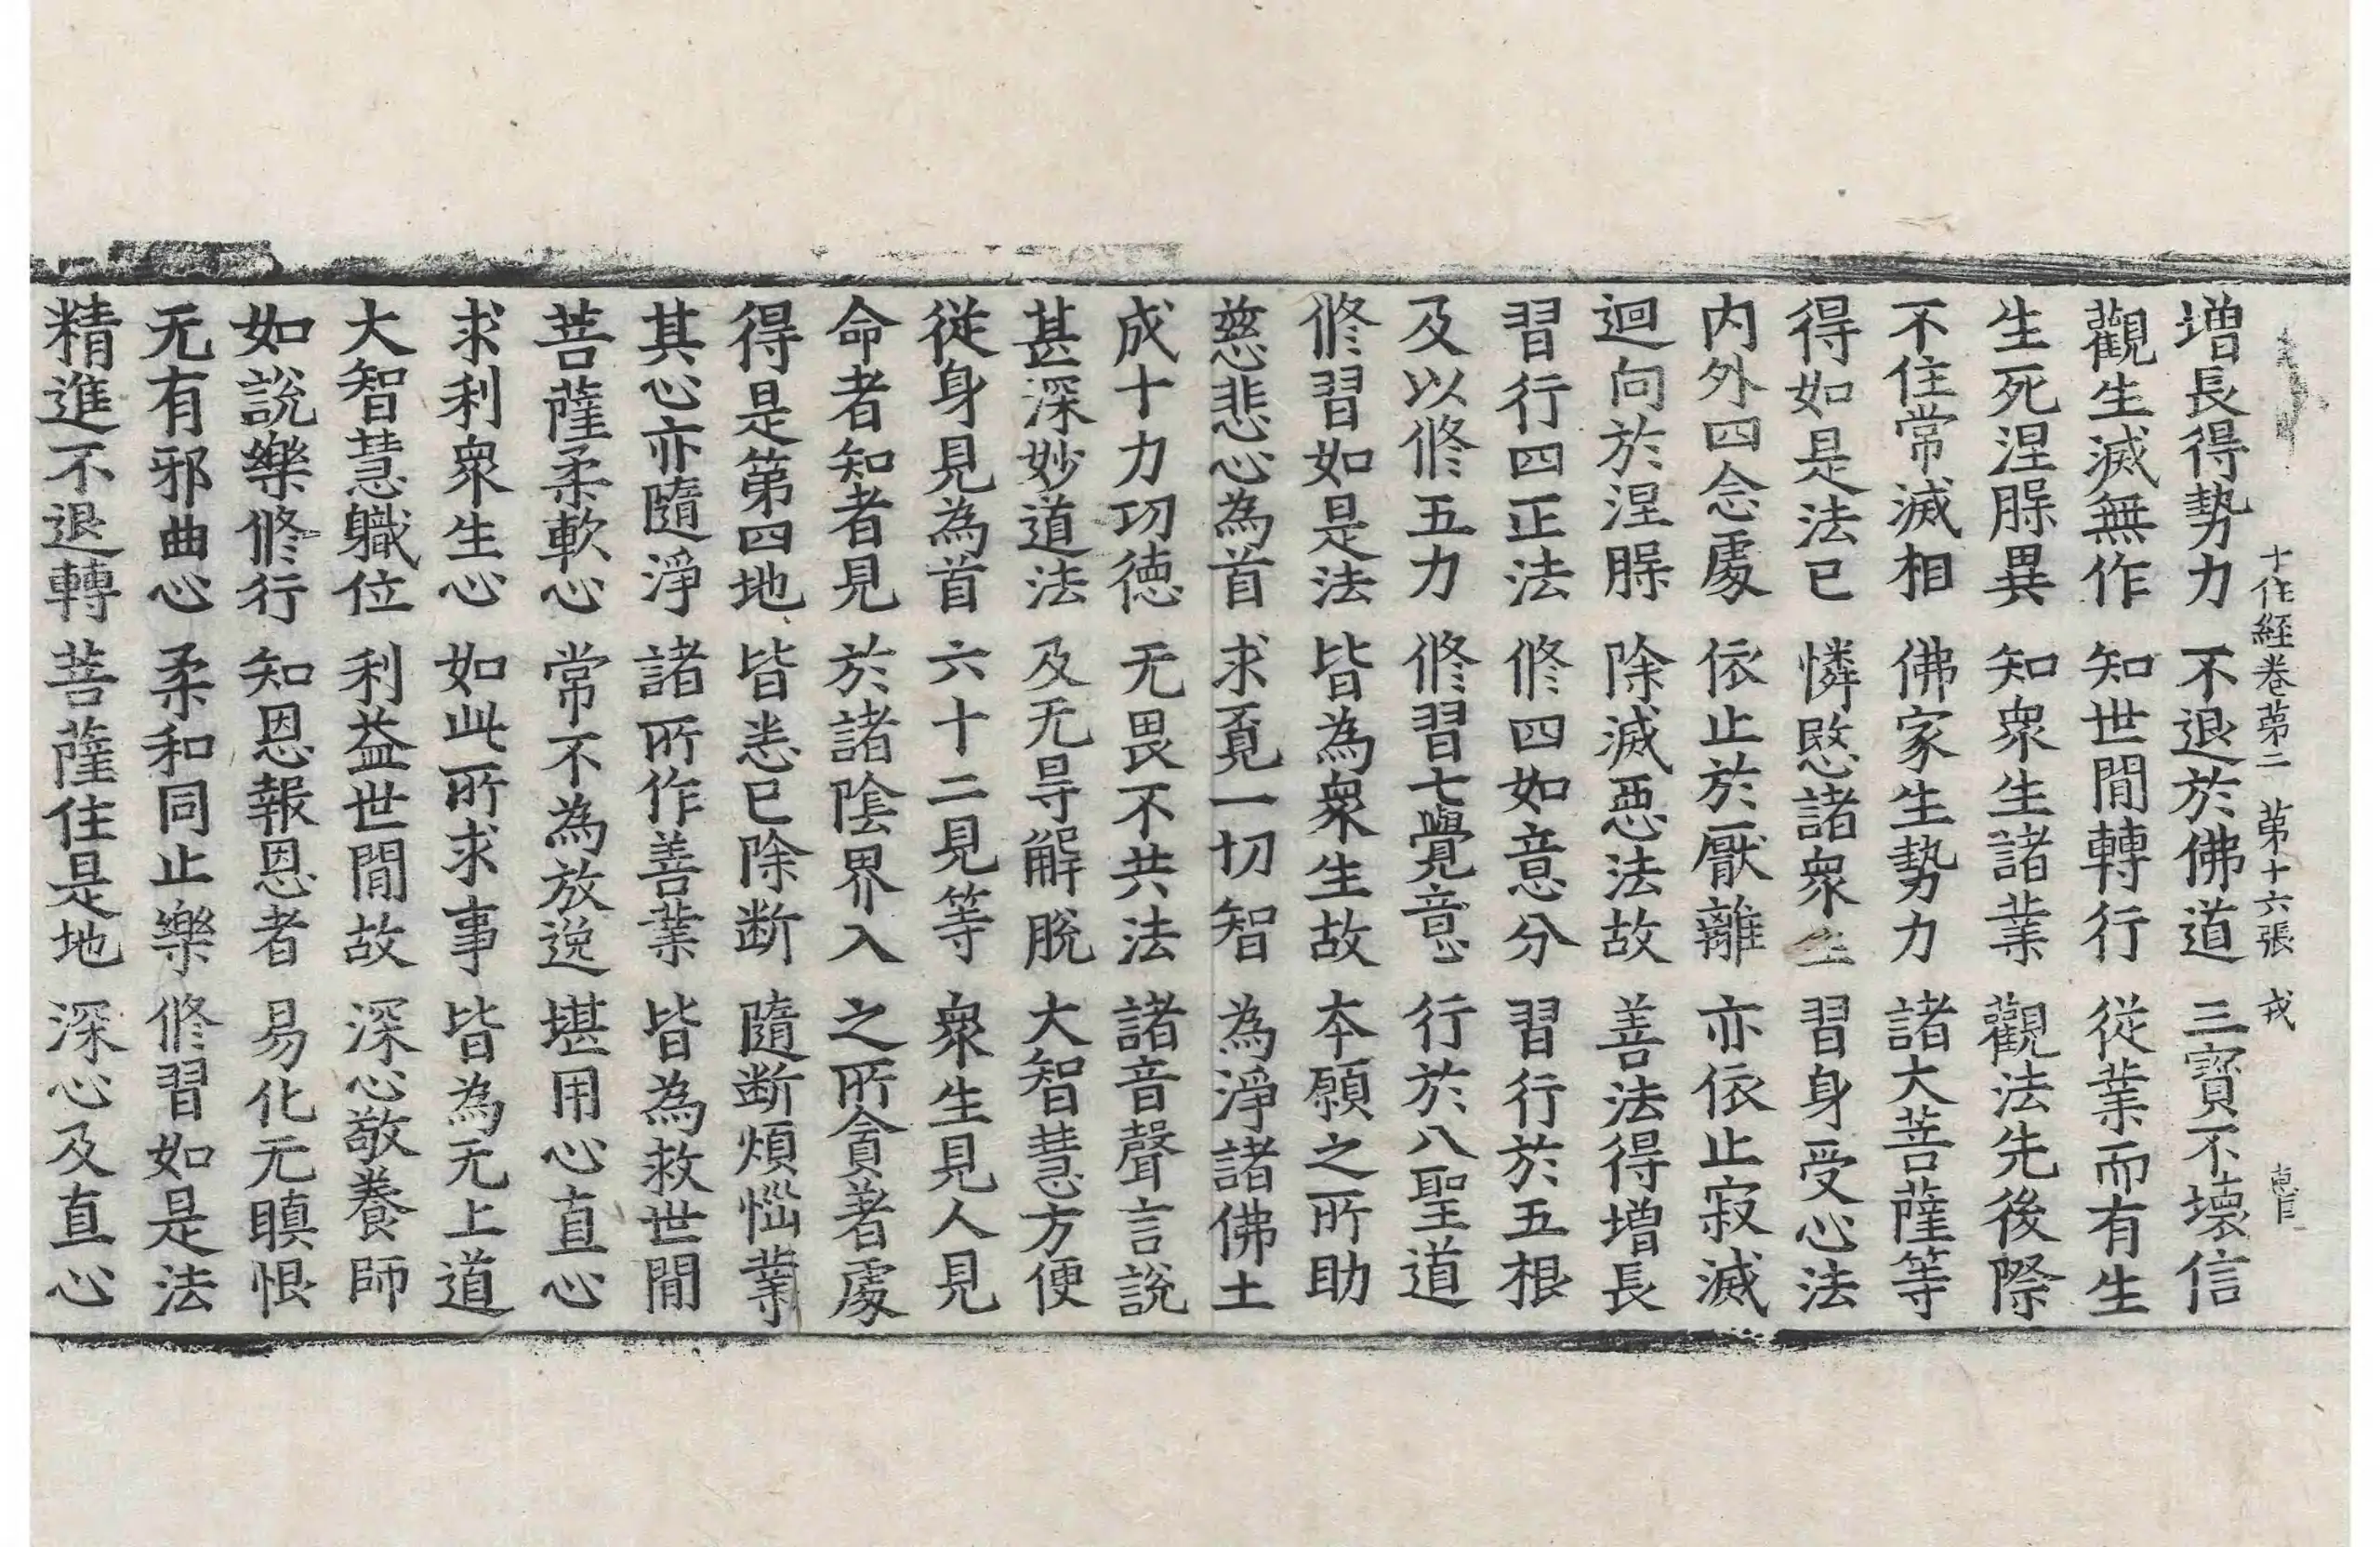 十住經卷第二 第十六張 戎
增長得勢力 不退於佛道 三寶不壞信
觀生滅無作 知世間轉行 從業而有生
生死涅槃異 知衆生諸業 觀法先後際
不住常滅相 佛家生勢力 諸大菩薩等
得如是法已 憐愍諸衆生 習身受心法
内外四念處 依止於厭離 亦依止寂滅
迴向於涅槃 除滅惡法故 善法得增長
習行四正法 修四如意分 習行於五根
及以修五力 修習七覺意 行於八聖道
修習如是法 皆為衆生故 本願之所助
慈悲心為首 求覓一切智 為淨諸佛土
成十力功德 无畏不共法 諸音聲言說
甚深妙道法 及无㝵解脫 大智慧方便
從身見為首 六十二見等 衆生見人見
命者知者見 於諸陰界入 之所貪著處
得是第四地 皆悉已除斷 隨斷煩惱業
其心亦隨淨 諸所作善業 皆為救世間
菩薩柔軟心 常不為放逸 堪用心直心
求利衆生心 如此所求事 皆為无上道
大智慧職位 利益世間故 深心敬養師
如說樂修行 知恩報恩者 易化无瞋恨
无有邪曲心 柔和同止樂 修習如是法
精進不退轉 菩薩住是地 深心及直心